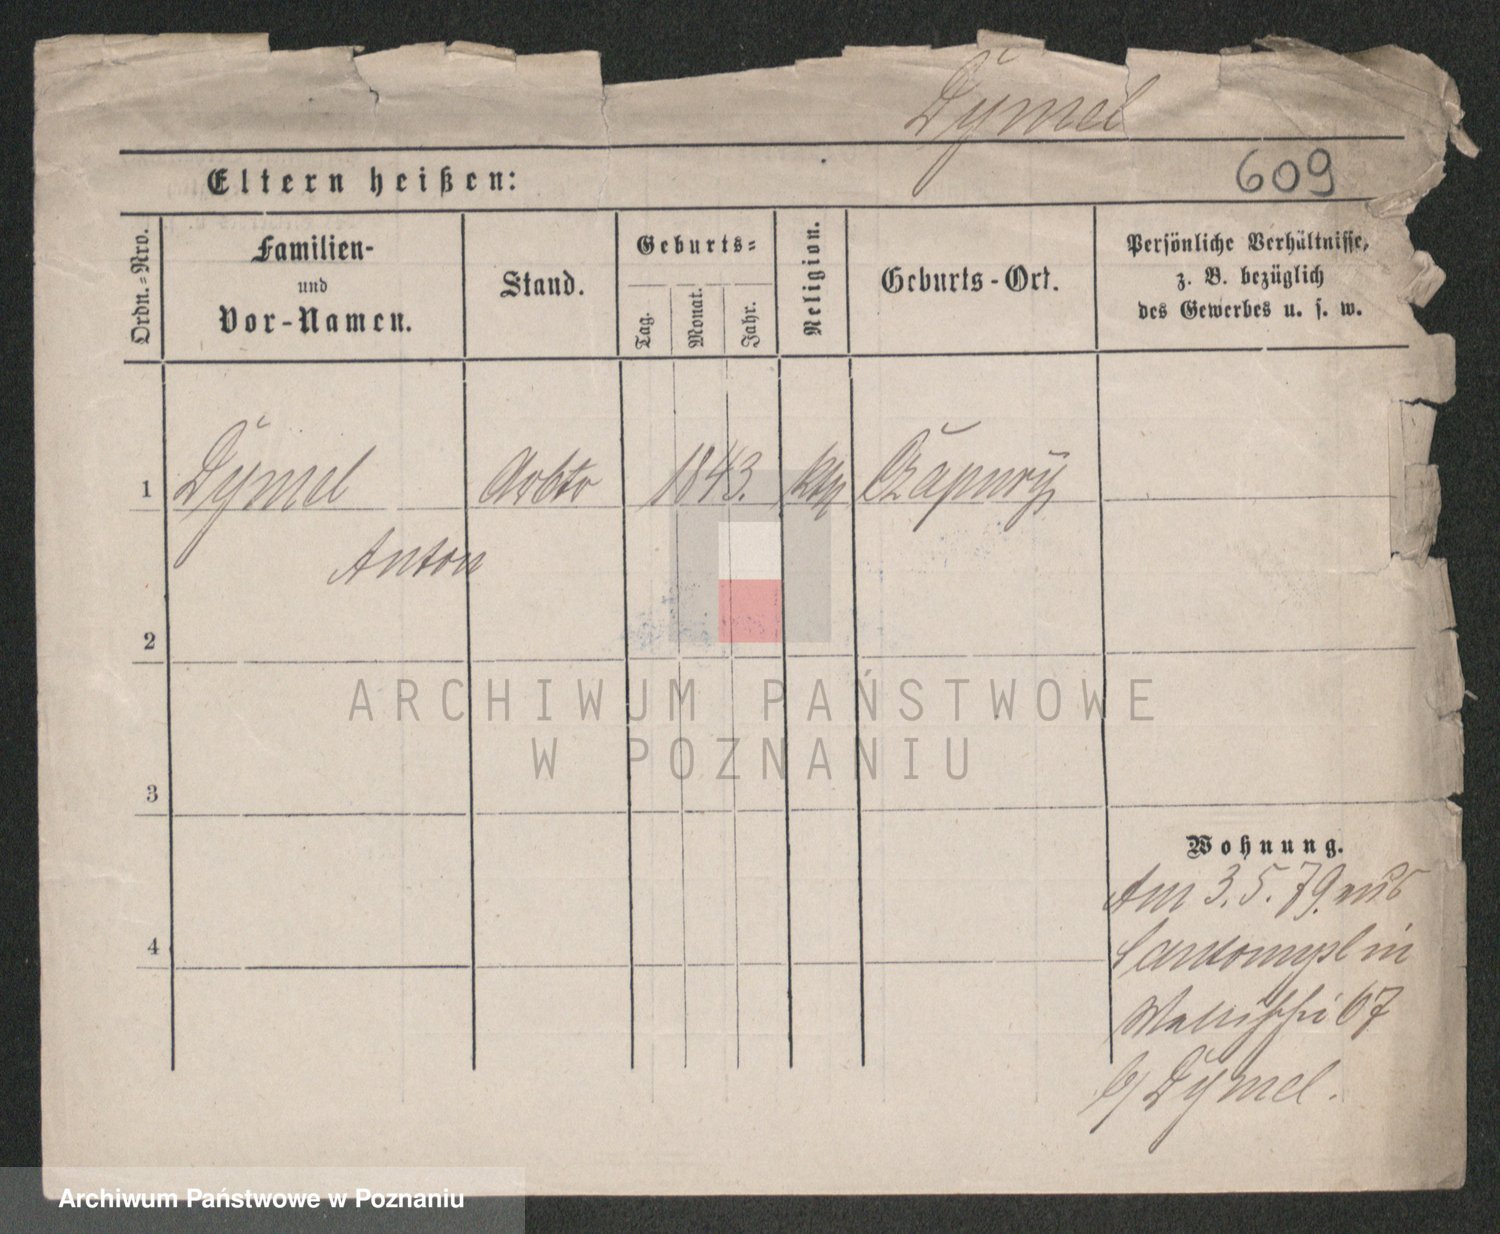 Dymel
609
Eltern heißen:
Ordn.=Nro.
Familien-
und
Vor-Namen.
Stand.
Geburts=
Tag.
Monat.
Jahr.
Religion.
Geburts-Ort.
Persönliche Verhältnisse,
z. B. bezüglich
des Gewerbes u. s. w.
1 Dymel Arbtr 1843. kth Czapury
Anton
2
3
4
ARCHIWUM PAŃSTWOWE
W POZNANIU
Wohnung.
Am 3.5.79. aus
in
Wallischei 67
b/ Dymel.
Archiwum Państwowe w Poznaniu